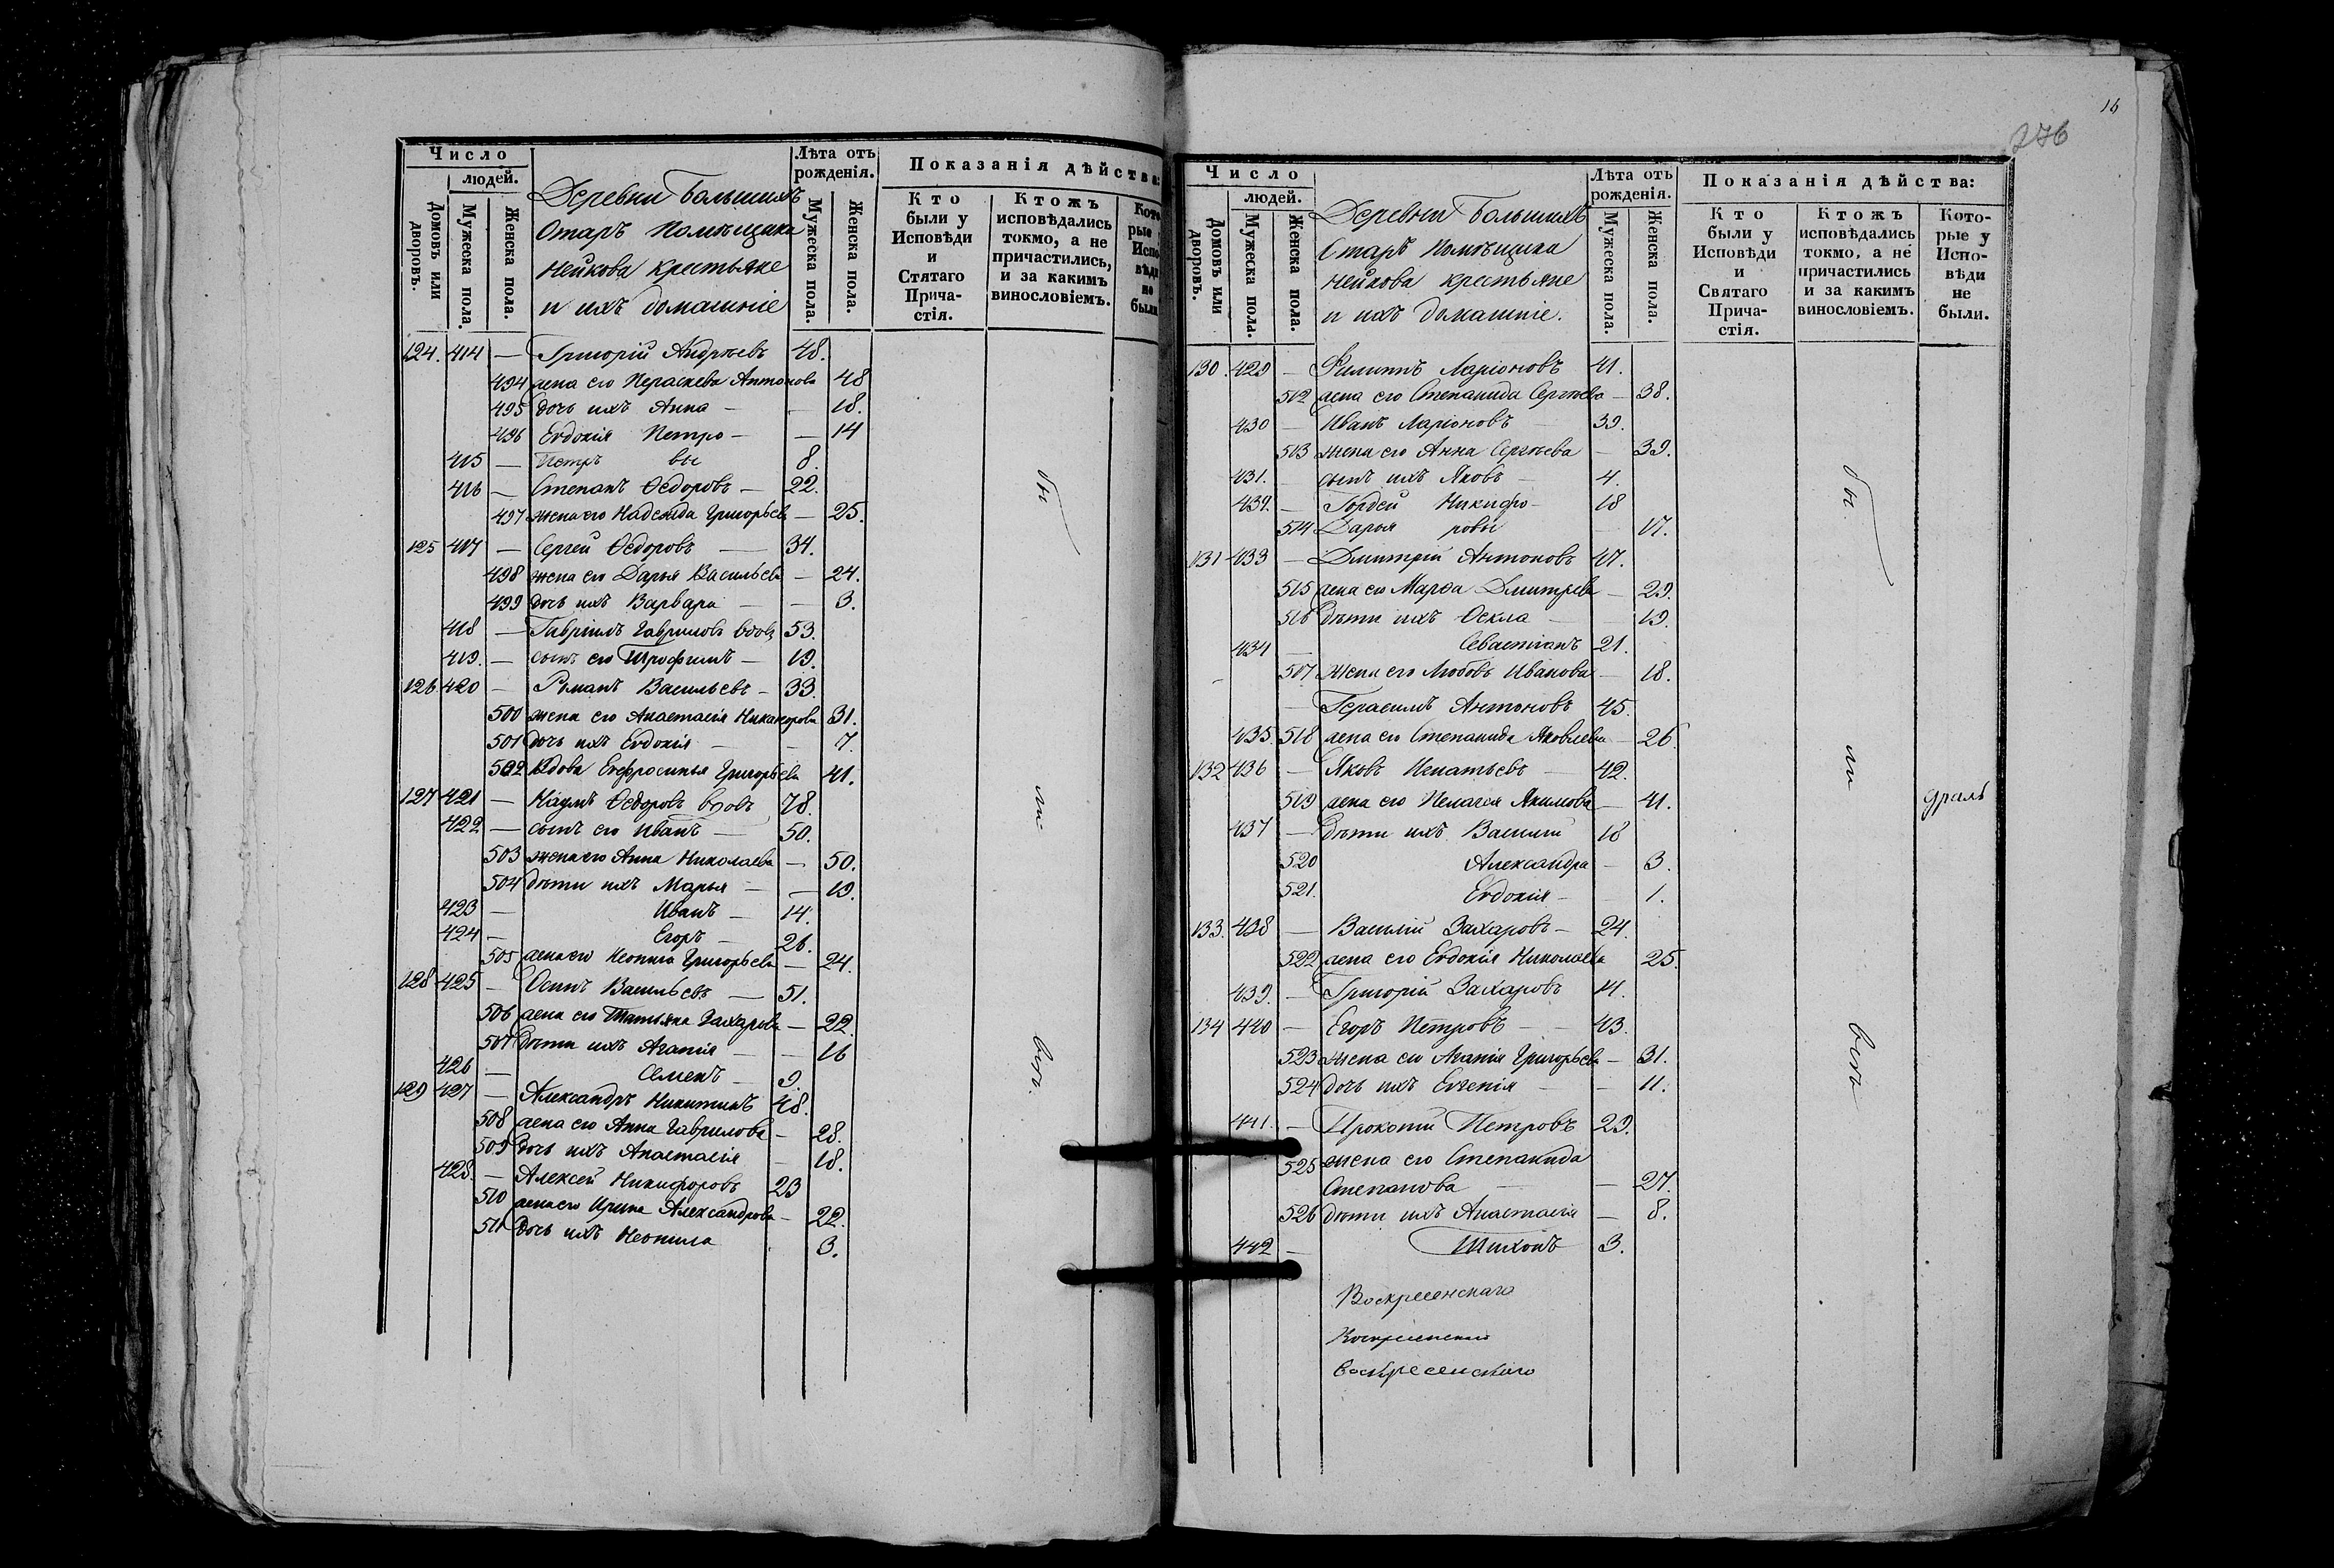 Число
людей.
Домовъ или дворовъ.
Мужеска пола.
Женска пола.
Деревни Большихъ
Отаръ Помѣщика
Нейкова крестьяне
и ихъ домашніе
Лѣта отъ
рожденія.
Мужеска пола.
Женска пола.
Показанія дѣйства:
Кто
были у
Исповѣди
и
Стятаго
Прича-
стія.
Ктожъ
исповѣдались
токмо, а не
причастились,
и за какимъ
винословіемъ.
Кото
рые
Испо
вѣди
не
были
124. 414 — Григорій Андреевъ 48.
494 жена его Параскева Антонова 48
495 дочь ихъ Анна — — 18.
496 Евдокія Петро- — 14
415 — Петръ вы 8.
416 — Степанъ Ѳедоровъ — 22.
497 жена его Надежда Григорьева — 25.
125 417 — Сергей Ѳедоровъ — 34.
498 жена его Дарья Васильева — 24.
499 дочь ихъ Варвара — — 3.
418 — Гавріилъ Гавриловъ вдовъ 53.
419. — сынъ его Трофимъ — 19.
126 420 — Романъ Васильевъ — 33.
500 жена его Анастасія Никанорова 31.
501 дочь ихъ Евдокія — — 7.
502 Вдова Евфросинья Григорьева 41.
127 421 — Наумъ Ѳедоровъ вдовъ 78.
422 — сынъ его Иванъ — 50.
503 жена его Анна Николаева — 50.
504 дѣти ихъ Марья — — 19.
423 — Иванъ — 14.
424 — Егоръ — 26.
505 жена его Неонила Григорьева — 24.
128 425 — Осипъ Васильевъ — 51.
506 жена его Татьяна Захарова — 22.
507 дѣти ихъ Агапія — — 16
426 — Семенъ — 9.
129 427 — Александръ Никитинъ 48.
508 жена его Анна Гаврилова — 28.
509 дочь ихъ Анастасія — 18.
428. — Алексей Никифоровъ 23
510 жена его Ирина Александрова — 22.
511 дочь ихъ Неонила 3.
бы
ли
вси.
16
276
Число
людей.
Домовъ или дворовъ.
Мужеска пола.
Женска пола.
Деревни Большихъ
Отаръ Помѣщика
Нейкова крестьяне
и ихъ домашніе.
Лѣта отъ
рожденія.
Мужеска пола.
Женска пола.
Показанія дѣйства:
Кто
были у
Исповѣди
и
Святаго
Прича-
стія.
Ктожъ
исповѣдались
токмо, а не
причастились
и за какимъ
винословіемъ.
Кото-
рые у
Испо-
вѣди
не
были.
130. 429 — Филиппъ Ларіоновъ 41.
512 жена его Степанида Сергѣева — 38.
430 — Иванъ Ларіоновъ — 39.
513 жена его Анна Сергѣева — 39.
431. — сынъ ихъ Яковъ — 4.
432. — Гордей Никифо- 18
514 Дарья ровы — 17.
131 433 — Дмитрій Антоновъ 47.
515 жена его Марѳа Дмитріева — 29.
516 дѣти ихъ Ѳекла — — 19.
434 — Севастіанъ 21.
517 жена его Любовь Иванова — 18.
— Герасимъ Антоновъ 45.
435. 518 жена его Степанида Яковлева — 26.
132 436 — Яковъ Игнатьевъ — 42.
519 жена его Пелагея Якимова — 41.
437 — дѣти ихъ Василій 18
520 Александра — 3.
521. Евдокія — 1.
133. 438 — Василій Захаровъ — 24.
522 жена его Евдокія Николаева 25.
439. — Григорій Захаровъ 14.
134 440 — Егоръ Петровъ — 43.
523 жена его Агапія Григорьева — 31.
524 дочь ихъ Евгенія — — 11.
441. — Прокопій Петровъ 29.
525 жена его Степанида
Степанова — — 27.
526 дѣти ихъ Анастасія — 8.
442 — Тихонъ 3.
бы
ли
вси
Воскресенскаго
Воскресенскій
Воскресенскаго